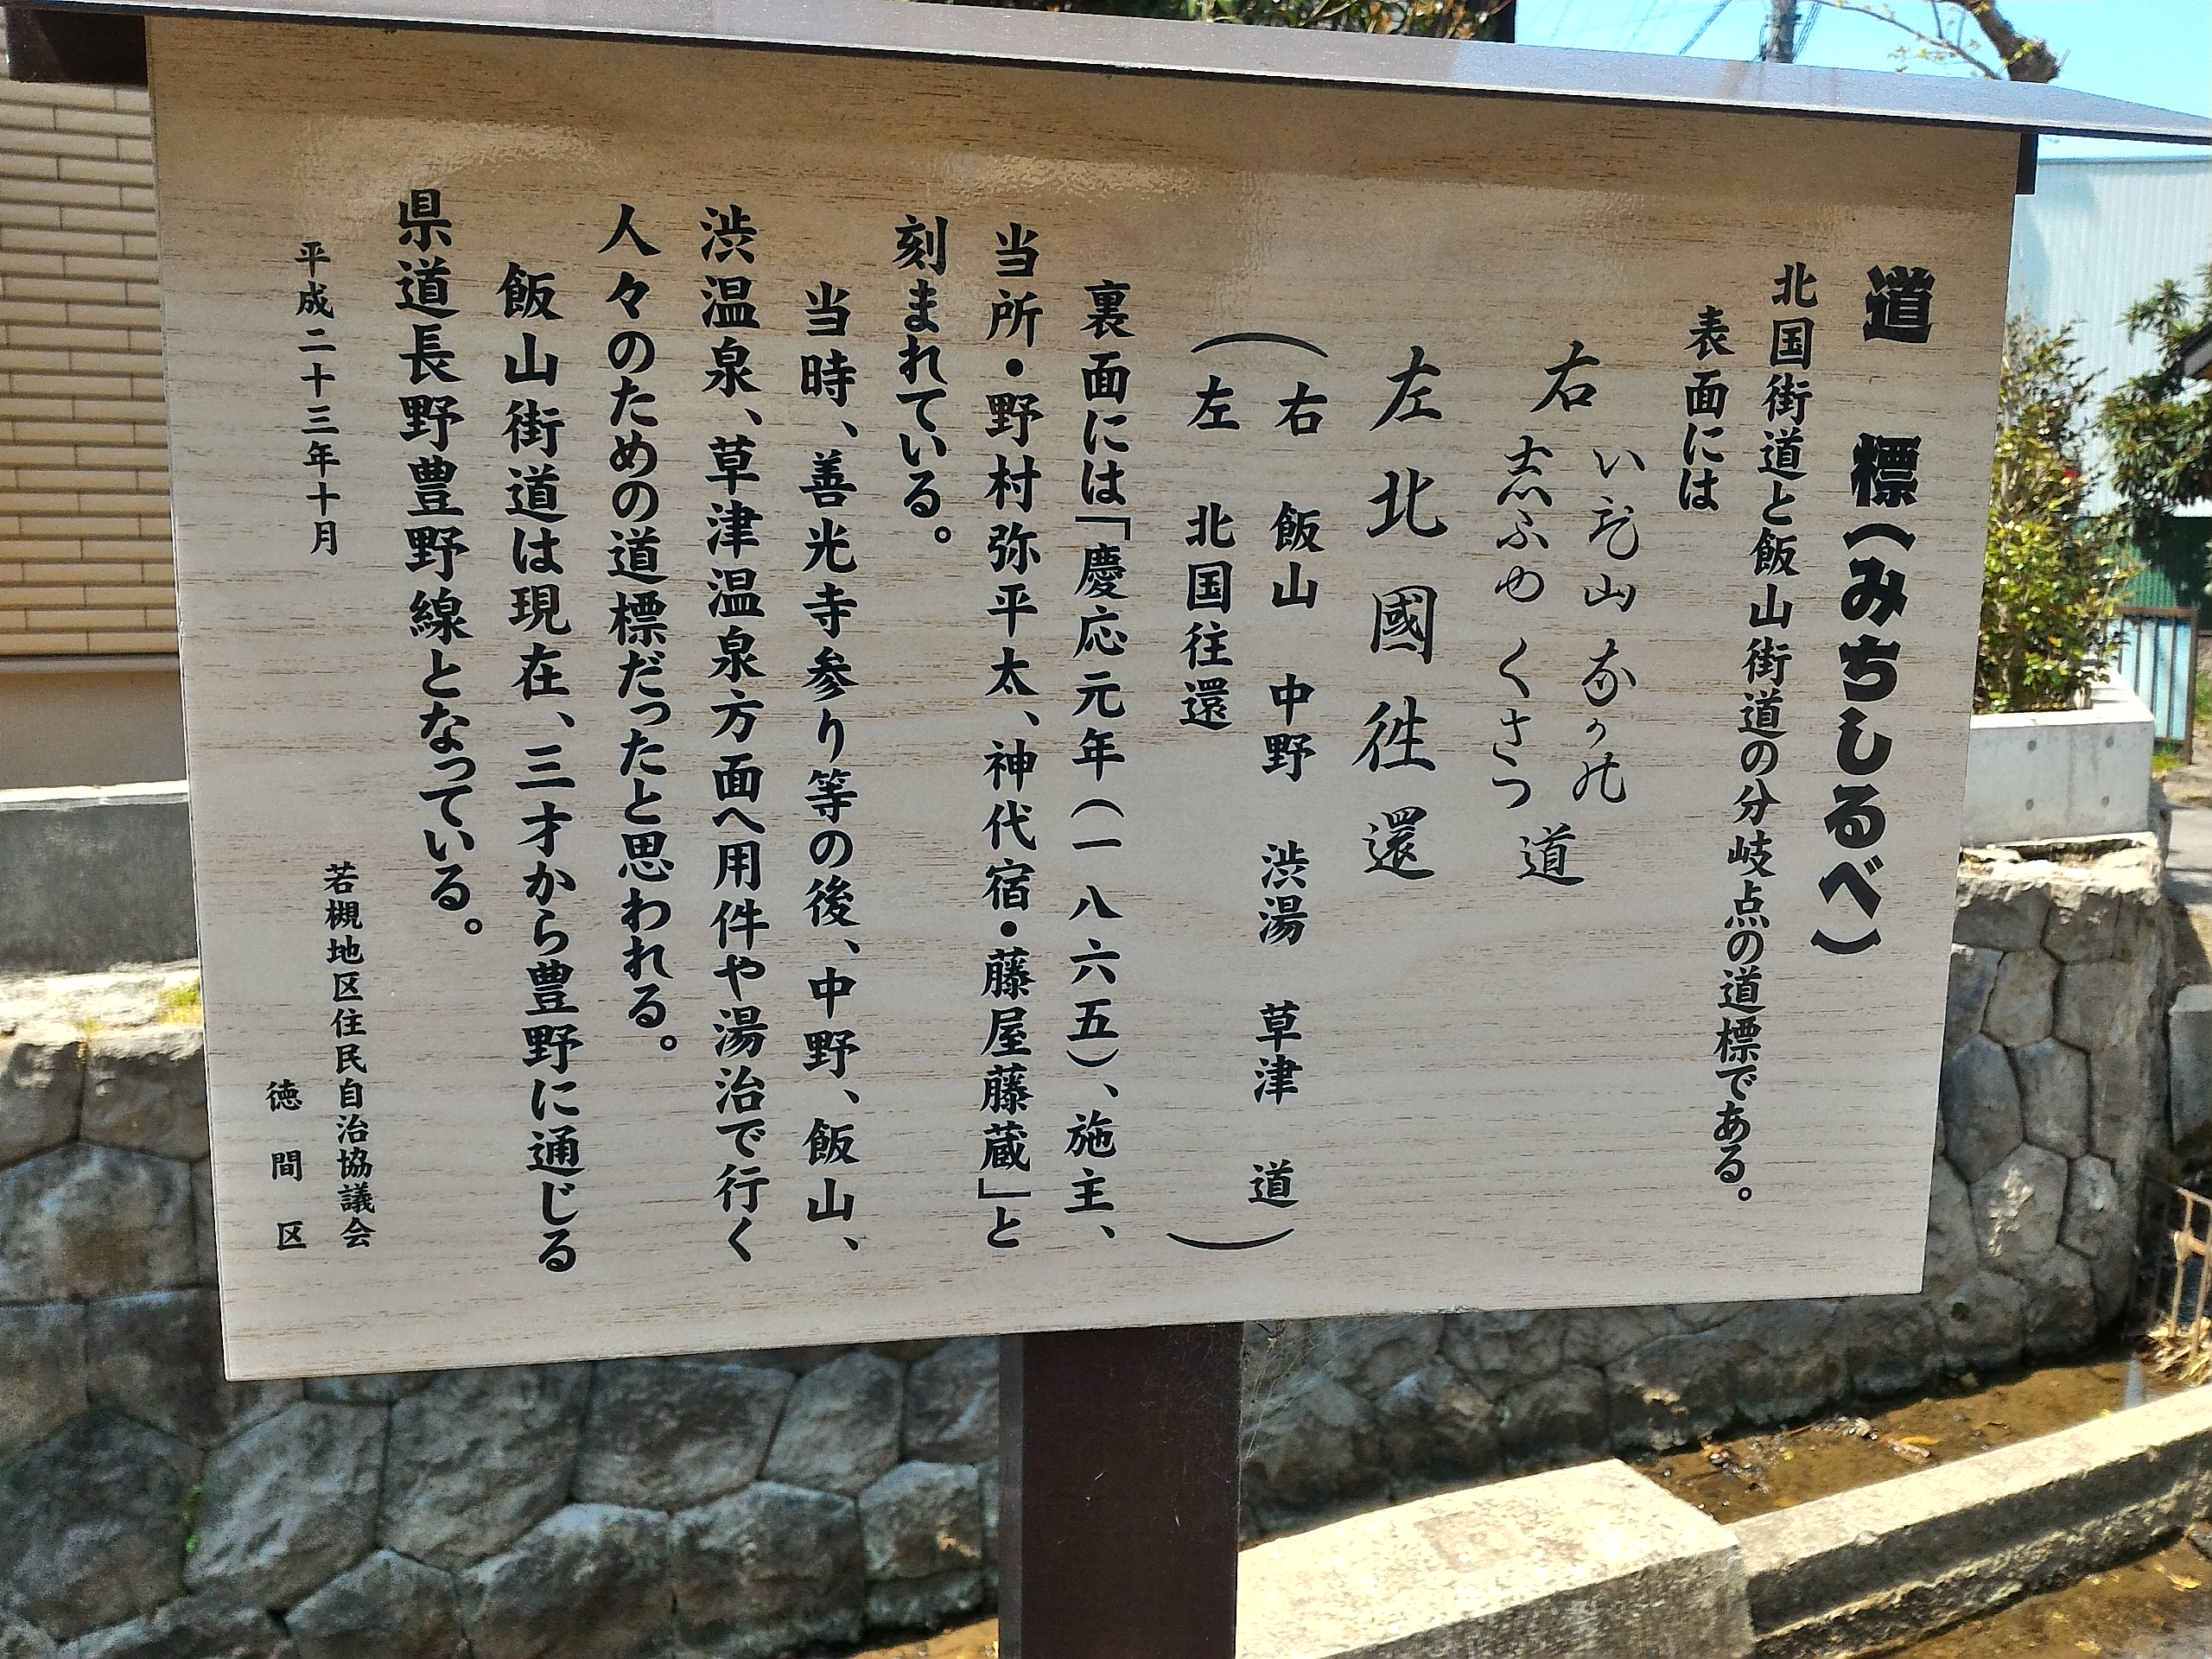 道 標(みちしるべ)
北国街道と飯山街道の分岐点の道標である。
表面には
右 いひ山 なかの 道
志ふゆ くさつ
左 北 國 徃 還
(右 飯山 中野 渋湯 草津 道
左 北国往還)
裏面には「慶応元年(一八六五)、施主、
当所・野村弥平太、神代宿・藤屋藤蔵」と
刻まれている。
当時、善光寺参り等の後、中野、飯山、
渋温泉、草津温泉方面へ用件や湯治で行く
人々のための道標だったと思われる。
飯山街道は現在、三才から豊野に通じる
県道長野豊野線となっている。
平成二十三年十月
若槻地区住民自治協議会
徳間区